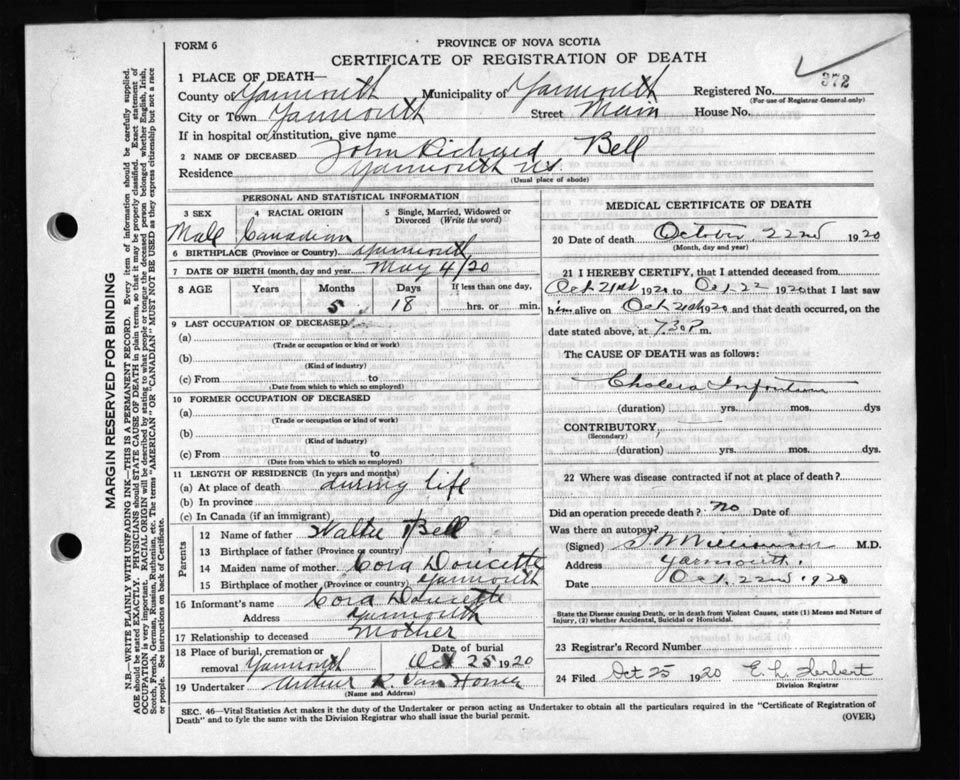 FORM 6
PROVINCE OF NOVA SCOTIA
CERTIFICATE OF REGISTRATION OF DEATH
372
1 PLACE OF DEATH—
County of Yarmouth Municipality of Yarmouth Registered No.
(For use of Registrar General only)
City or Town Yarmouth Street Main House No.
If in hospital or institution, give name
2 NAME OF DECEASED John Richard Bell
Residence Yarmouth N.S.
(Usual place of abode)
PERSONAL AND STATISTICAL INFORMATION
3 SEX 4 RACIAL ORIGIN 5 Single, Married, Widowed or
Divorced (Write the word)
Male Canadian
6 BIRTHPLACE (Province or Country) Yarmouth
7 DATE OF BIRTH (month, day and year) May 4/20
8 AGE Years Months Days If less than one day,
5 18 hrs. or min.
9 LAST OCCUPATION OF DECEASED
(a)
(Trade or occupation or kind or work)
(b)
(Kind of industry)
(c) From to
(Date from which to which so employed)
10 FORMER OCCUPATION OF DECEASED
(a)
(Trade or occupation or kind of work)
(b)
(Kind of industry)
(c) From to
(Date from which to which so employed)
11 LENGTH OF RESIDENCE (In years and months)
(a) At place of death during life
(b) In province
(c) In Canada (if an immigrant)
Parents
12 Name of father Walter Bell
13 Birthplace of father (Province or country)
14 Maiden name of mother Cora Doucette
15 Birthplace of mother (Province or country) Yarmouth
16 Informant's name Cora Doucette
Address Yarmouth
17 Relationship to deceased Mother
18 Place of burial, cremation or Date of burial
removal Yarmouth Oct 25 1920
19 Undertaker Arthur K. Van Horne
(Name and Address)
MEDICAL CERTIFICATE OF DEATH
20 Date of death October 22nd 1920
(Month, day and year)
21 I HEREBY CERTIFY, that I attended deceased from
Oct 21st 1920 to Oct 22 1920 that I last saw
him alive on Oct 21st 1920 and that death occurred, on the
date stated above, at 7.30 P m.
The CAUSE OF DEATH was as follows:
Cholera Infantum
(duration) yrs. mos. dys
CONTRIBUTORY,
(Secondary)
(duration) yrs. mos. dys.
22 Where was disease contracted if not at place of death?
Did an operation precede death? No Date of
Was there an autopsy?
(Signed) M.D.
Address Yarmouth.
Date Oct. 22nd 1920
State the Disease causing Death, or in death from Violent Causes, state (1) Means and Nature of
Injury, (2) whether Accidental, Suicidal or Homicidal.
23 Registrar's Record Number
24 Filed Oct 25 1920 E. L. Herbert
Division Registrar
SEC. 46—Vital Statistics Act makes it the duty of the Undertaker or person acting as Undertaker to obtain all the particulars required in the "Certificate of Registration of
Death" and to fyle the same with the Division Registrar who shall issue the burial permit. (OVER)
MARGIN RESERVED FOR BINDING
N.B.—WRITE PLAINLY WITH UNFADING INK—THIS IS A PERMANENT RECORD. Every item of information should be carefully supplied.
AGE should be stated EXACTLY. PHYSICIANS should STATE CAUSE OF DEATH in plain terms, so that it may be properly classified. Exact statement of
OCCUPATION is very important. RACIAL ORIGIN will be described by stating to what people or tongue the deceased person belonged whether English, Irish,
Scotch, French, German, Russian, Ruthenian, etc. The terms "AMERICAN" OR "CANADIAN" MUST NOT BE USED as they express citizenship but not a race
or people. See instructions on back of Certificate.